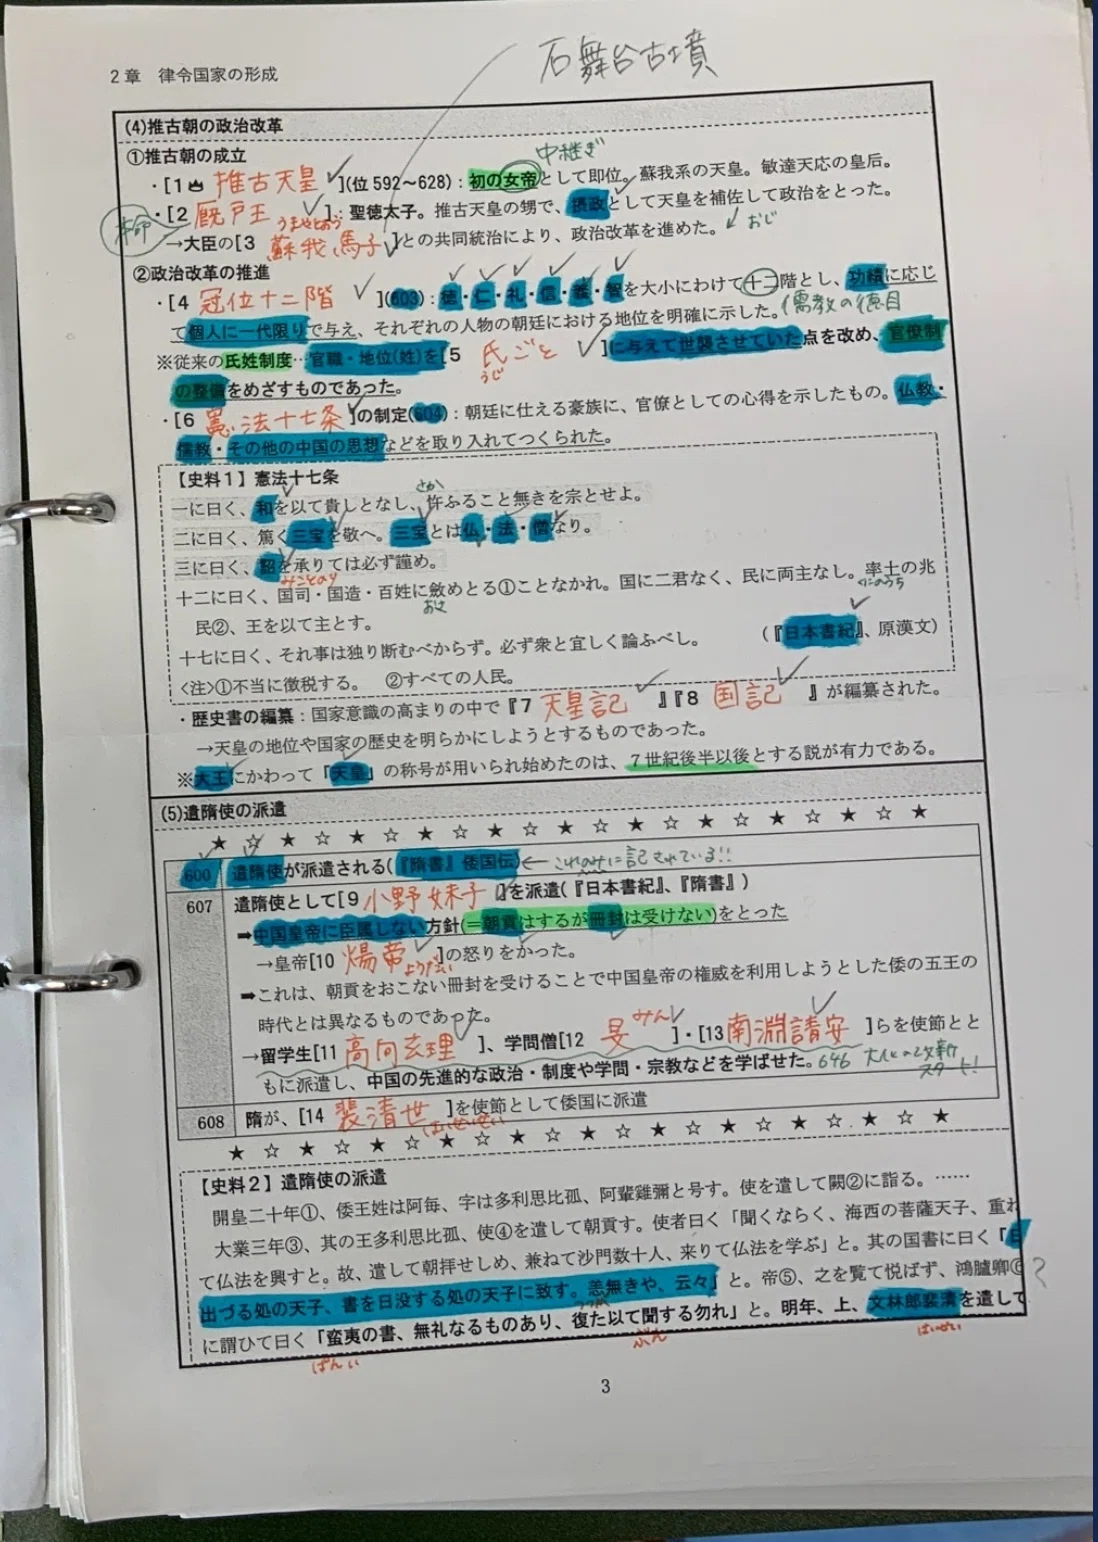 石舞台古墳
2章　律令国家の形成
(4)推古朝の政治改革
①推古朝の成立
中継ぎ
・[1 推古天皇 ](位592～628)：初の女帝として即位。蘇我系の天皇。敏達天応の皇后。
本命
・[2 厩戸王 ]：聖徳太子。推古天皇の甥で、摂政として天皇を補佐して政治をとった。
うまやとおう
おじ
→大臣の[3 蘇我馬子 ]との共同統治により、政治改革を進めた。
②政治改革の推進
・[4 冠位十二階 ](603)：徳・仁・礼・信・義・智を大小にわけて十二階とし、功績に応じ
儒教の徳目
て個人に一代限りで与え、それぞれの人物の朝廷における地位を明確に示した。
※従来の氏姓制度…官職・地位(姓)を[5 氏ごと ]に与えて世襲させていた点を改め、官僚制
うじ
の整備をめざすものであった。
・[6 憲法十七条 ]の制定(604)：朝廷に仕える豪族に、官僚としての心得を示したもの。仏教・
儒教・その他の中国の思想などを取り入れてつくられた。
【史料1】憲法十七条
さか
一に曰く、和を以て貴しとなし、忤ふること無きを宗とせよ。
二に曰く、篤く三宝を敬へ。三宝とは仏・法・僧なり。
三に曰く、詔を承りては必ず謹め。
みことのり
十二に曰く、国司・国造・百姓に斂めとる①ことなかれ。国に二君なく、民に両主なし。率土の兆
おさ
くにのうち
民②、王を以て主とす。
十七に曰く、それ事は独り断むべからず。必ず衆と宜しく論ふべし。　　（『日本書紀』、原漢文）
<注>①不当に徴税する。　②すべての人民。
・歴史書の編纂：国家意識の高まりの中で『7 天皇記 』『8 国記 』が編纂された。
→天皇の地位や国家の歴史を明らかにしようとするものであった。
※大王にかわって「天皇」の称号が用いられ始めたのは、7世紀後半以後とする説が有力である。
(5)遣隋使の派遣
★ ☆ ★ ☆ ★ ☆ ★ ☆ ★ ☆ ★ ☆ ★ ☆ ★ ☆ ★ ☆ ★ ☆ ★
600 遣隋使が派遣される(『隋書』倭国伝) ← これのみに記されている!!
607 遣隋使として[9 小野妹子 ]を派遣(『日本書紀』、『隋書』)
➡中国皇帝に臣属しない方針(＝朝貢はするが冊封は受けない)をとった
→皇帝[10 煬帝 ]の怒りをかった。
ようだい
➡これは、朝貢をおこない冊封を受けることで中国皇帝の権威を利用しようとした倭の五王の
時代とは異なるものであった。
みん
→留学生[11 高向玄理 ]、学問僧[12 旻 ]・[13 南淵請安 ]らを使節とと
もに派遣し、中国の先進的な政治・制度や学問・宗教などを学ばせた。 646 大化の改新
スタート!
608 隋が、[14 裴清世 ]を使節として倭国に派遣
はいせいせい
★ ☆ ★ ☆ ★ ☆ ★ ☆ ★ ☆ ★ ☆ ★ ☆ ★ ☆ ★ ☆ ★ ☆ ★
【史料2】遣隋使の派遣
開皇二十年①、倭王姓は阿毎、字は多利思比孤、阿輩雞彌と号す。使を遣して闕②に詣る。……
大業三年③、其の王多利思比孤、使④を遣して朝貢す。使者曰く「聞くならく、海西の菩薩天子、重ね
て仏法を興すと。故、遣して朝拝せしめ、兼ねて沙門数十人、来りて仏法を学ぶ」と。其の国書に曰く「日
出づる処の天子、書を日没する処の天子に致す。恙無きや、云々」と。帝⑤、之を覧て悦ばず、鴻臚卿⑥ ?
つつが
に謂ひて曰く「蛮夷の書、無礼なるものあり、復た以て聞する勿れ」と。明年、上、文林郎裴清を遣して
ばんい
ぶん
はいせい
3